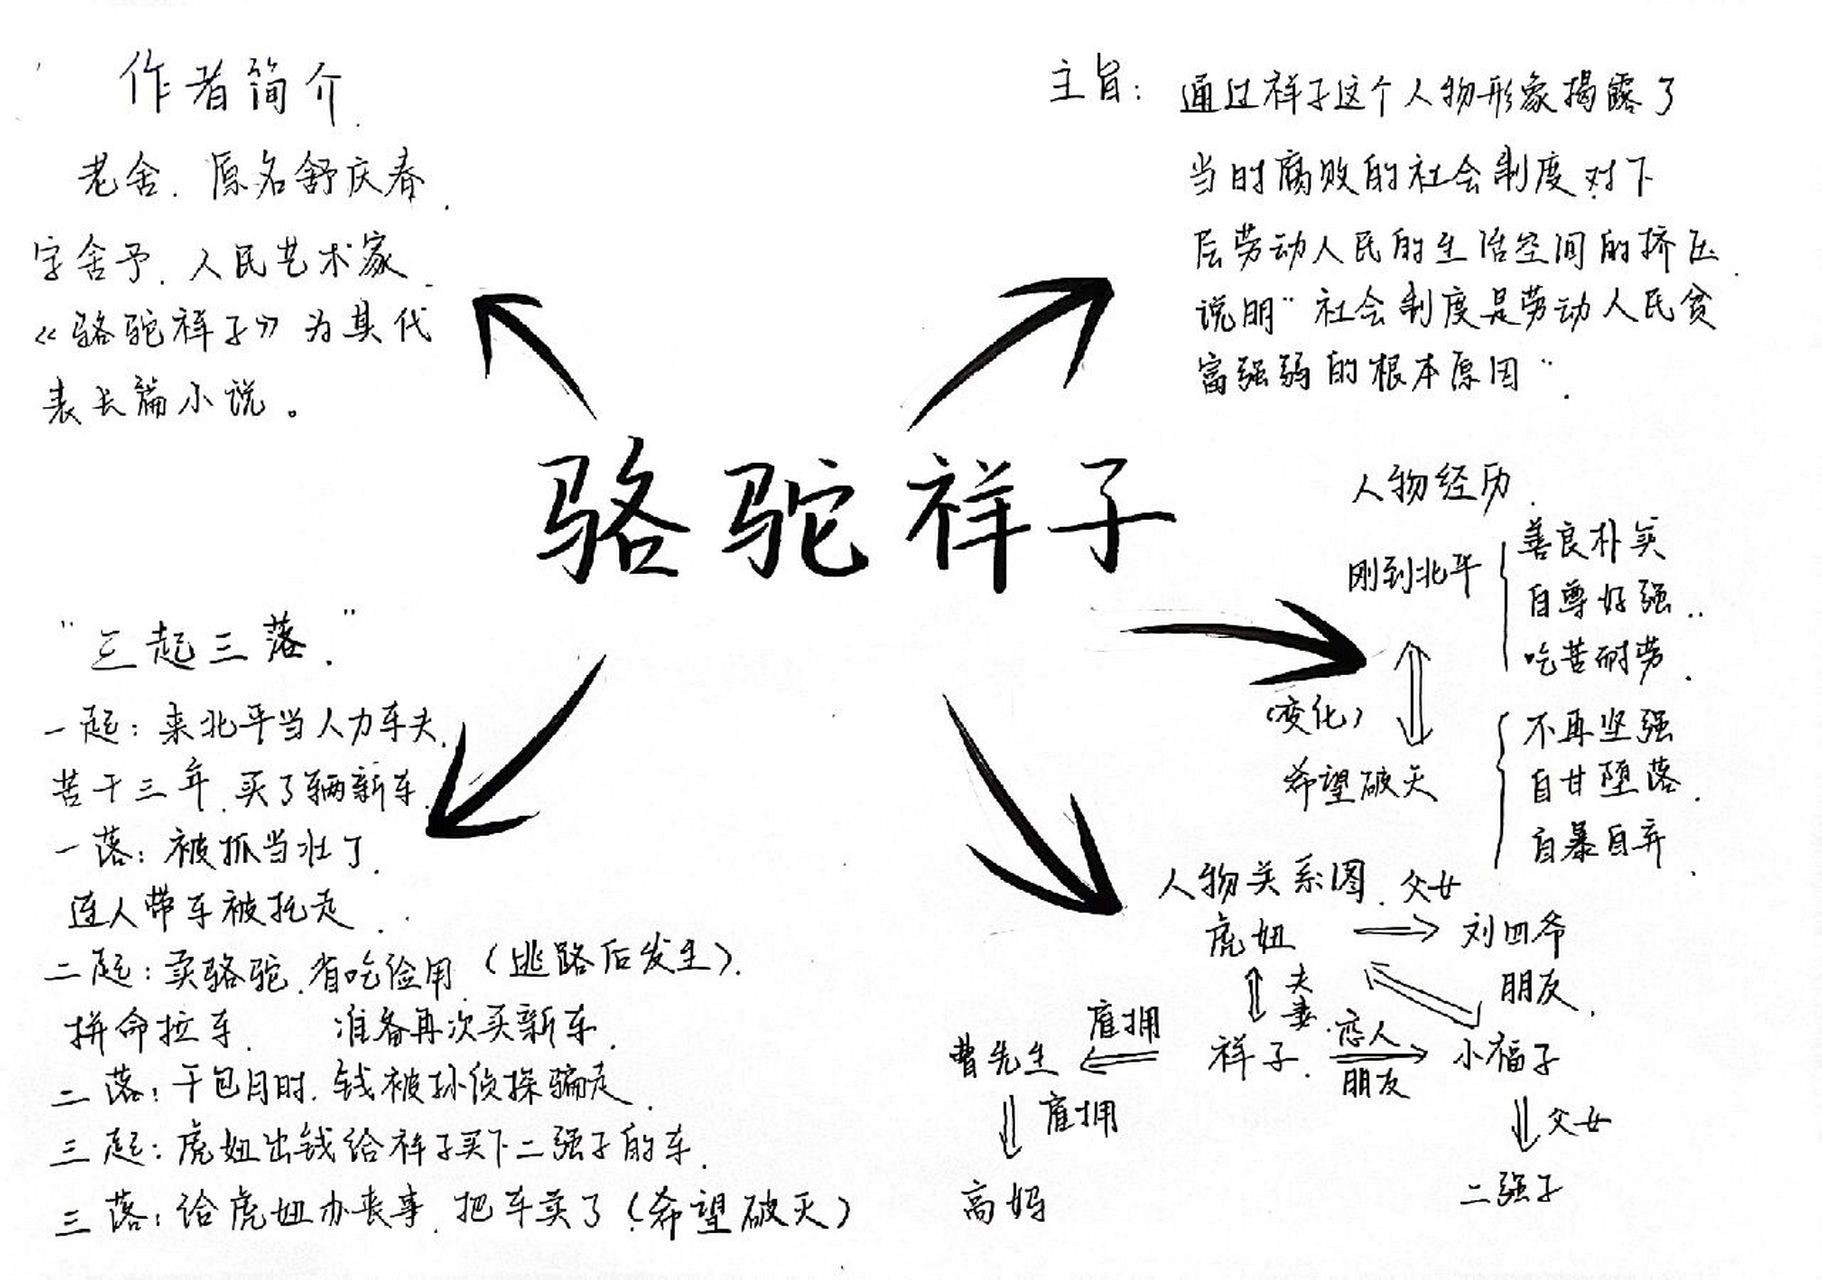 作者简介
老舍.原名舒庆春.
字舍予.人民艺术家.
《骆驼祥子》为其代
表长篇小说。
主旨:通过祥子这个人物形象揭露了
当时腐败的社会制度对下
层劳动人民的生活空间的挤压.
说明"社会制度是劳动人民贫
富强弱的根本原因".
骆驼祥子
"三起三落."
一起:来北平当人力车夫.
苦干三年.买了辆新车.
一落:被抓当壮丁.
连人带车被拖走.
二起:卖骆驼.省吃俭用.(逃路后发生).
拼命拉车. 准备再次买新车.
二落:干包月时.钱被孙侦探骗走.
三起:虎妞出钱给祥子买下二强子的车.
三落:给虎妞办丧事.把车卖了(希望破灭)
人物经历.
刚到北平
善良朴实
自尊好强..
吃苦耐劳.
(变化)
希望破灭
不再坚强
自甘堕落.
自暴自弃.
人物关系图.
父女
虎妞
刘四爷
朋友.
夫妻.
雇拥
曹先生
祥子.
恋人
朋友
小福子
雇拥
父女
高妈
二强子